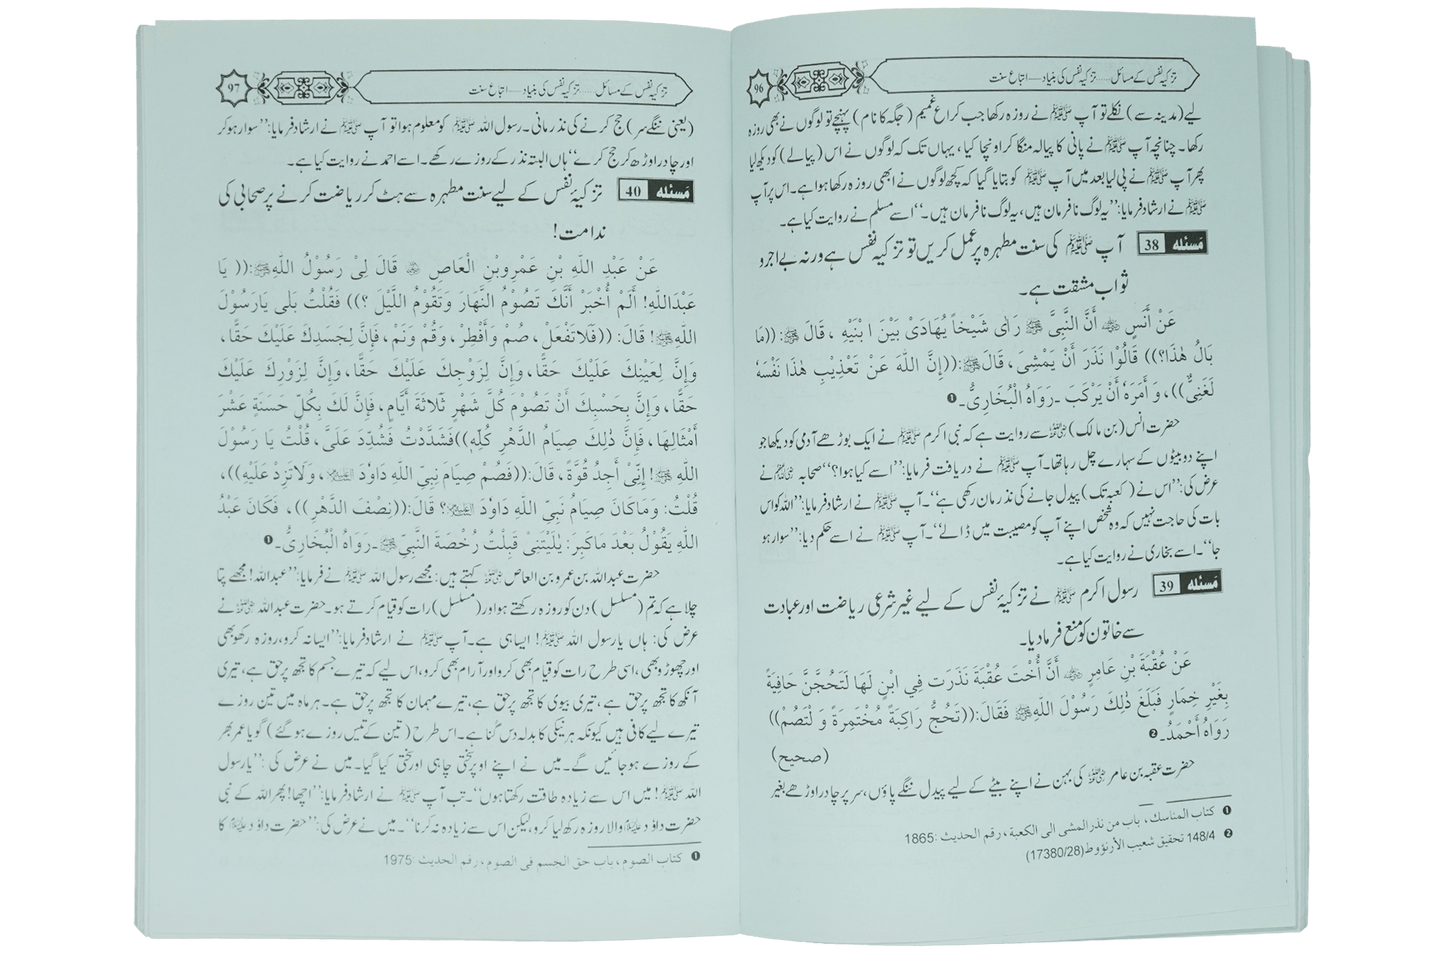 تزکیۂ نفس کے مسائل..... تزکیۂ نفس کی بنیاد — اتباع سنت
96
لیے (مدینہ سے) نکلے تو آپ ﷺ نے روزہ رکھا جب کراع غمیم (جگہ کا نام) پہنچے تو لوگوں نے بھی روزہ
رکھا۔ چنانچہ آپ ﷺ نے پانی کا پیالہ منگا کر اونچا کیا، یہاں تک کہ لوگوں نے اس (پیالے) کو دیکھ لیا
پھر آپ ﷺ نے پی لیا بعد میں آپ ﷺ کو بتایا گیا کہ کچھ لوگوں نے ابھی روزہ رکھا ہوا ہے۔ اس پر آپ
ﷺ نے ارشاد فرمایا: ”یہ لوگ نافرمان ہیں، یہ لوگ نافرمان ہیں۔“ اسے مسلم نے روایت کیا ہے۔
مَسئله 38 آپ ﷺ کی سنت مطہرہ پر عمل کریں تو تزکیہ نفس ہے ورنہ بے اجر و
ثواب مشقت ہے۔
عَنْ أَنَسٍ ؓ أَنَّ النَّبِيَّ ﷺ رَاٰى شَيْخاً يُهَادَى بَيْنَ ابْنَيْهِ ، قَالَ ﷺ: ((مَا
بَالُ هٰذَا؟)) قَالُوْا نَذَرَ أَنْ يَمْشِيَ ، قَالَ ﷺ: ((إِنَّ اللّٰهَ عَنْ تَعْذِيْبِ هٰذَا نَفْسَهٗ
لَغَنِيٌّ)) ، وَ أَمَرَهٗ أَنْ يَرْكَبَ ۔ رَوَاهُ الْبُخَارِيُّ۔ ❶
حضرت انس (بن مالک) ؓ سے روایت ہے کہ نبی اکرم ﷺ نے ایک بوڑھے آدمی کو دیکھا جو
اپنے دو بیٹوں کے سہارے چل رہا تھا۔ آپ ﷺ نے دریافت فرمایا: ”اسے کیا ہوا؟“ صحابہ ؓ نے
عرض کی: ”اس نے (کعبہ تک) پیدل جانے کی نذر مان رکھی ہے“۔ آپ ﷺ نے ارشاد فرمایا: ”اللہ کو اس
بات کی حاجت نہیں کہ وہ شخص اپنے آپ کو مصیبت میں ڈالے“۔ آپ ﷺ نے اسے حکم دیا: ”سوار ہو
جا“۔ اسے بخاری نے روایت کیا ہے۔
مَسئله 39 رسول اکرم ﷺ نے تزکیۂ نفس کے لیے غیر شرعی ریاضت اور عبادت
سے خاتون کو منع فرما دیا۔
عَنْ عُقْبَةَ بْنِ عَامِرٍ ؓ أَنَّ أُخْتَ عُقْبَةَ نَذَرَت فِي ابْنٍ لَهَا لَتَحُجَّنَّ حَافِيَةً
بِغَيْرِ خِمَارٍ فَبَلَغَ ذٰلِكَ رَسُوْلَ اللّٰهِ ﷺ فَقَالَ: ((تَحُجُّ رَاكِبَةً مُخْتَمِرَةً وَ لْتَصُمْ))
رَوَاهُ أَحْمَدُ۔ ❷ (صحیح)
حضرت عقبہ بن عامر ؓ کی بہن نے اپنے بیٹے کے لیے پیدل ننگے پاؤں، سر پر چادر اوڑھے بغیر
❶ کتاب المناسک، باب من نذر المشی الی الکعبة، رقم الحدیث :1865
❷ 148/4 تحقیق شعیب الأرنؤوط (17380/28)
تزکیۂ نفس کے مسائل..... تزکیۂ نفس کی بنیاد — اتباع سنت
97
(یعنی ننگے سر) حج کرنے کی نذر مانی۔ رسول اللہ ﷺ کو معلوم ہوا تو آپ ﷺ نے ارشاد فرمایا: ”سوار ہو کر
اور چادر اوڑھ کر حج کرے“ ہاں البتہ نذر کے روزے رکھے۔ اسے احمد نے روایت کیا ہے۔
مَسئله 40 تزکیۂ نفس کے لیے سنت مطہرہ سے ہٹ کر ریاضت کرنے پر صحابی کی
ندامت!
عَنْ عَبْدِ اللّٰهِ بْنِ عَمْرِوبْنِ الْعَاصِ ؓ قَالَ لِيْ رَسُوْلُ اللّٰهِ ﷺ: ((يَا
عَبْدَاللّٰهِ! أَلَمْ أُخْبَرْ أَنَّكَ تَصُوْمُ النَّهَارَ وَتَقُوْمُ اللَّيْلَ ؟)) فَقُلْتُ بَلٰى يَارَسُوْلَ
اللّٰهِ ﷺ! قَالَ: ((فَلَاتَفْعَلْ، صُمْ وَأَفْطِرْ، وَقُمْ وَنَمْ، فَإِنَّ لِجَسَدِكَ عَلَيْكَ حَقًّا،
وَإِنَّ لِعَيْنِكَ عَلَيْكَ حَقًّا، وَإِنَّ لِزَوْجِكَ عَلَيْكَ حَقًّا، وَإِنَّ لِزَوْرِكَ عَلَيْكَ
حَقًّا، وَإِنَّ بِحَسْبِكَ أَنْ تَصُوْمَ كُلَّ شَهْرٍ ثَلَاثَةَ أَيَّامٍ، فَإِنَّ لَكَ بِكُلِّ حَسَنَةٍ عَشْرَ
أَمْثَالِهَا، فَإِنَّ ذٰلِكَ صِيَامُ الدَّهْرِ كُلِّهٖ)) فَشَدَّدْتُ فَشُدِّدَ عَلَيَّ، قُلْتُ يَا رَسُوْلَ
اللّٰهِ ﷺ! إِنِّيْ أَجِدُ قُوَّةً، قَالَ: ((فَصُمْ صِيَامَ نَبِيِّ اللّٰهِ دَاوٗدَ ، وَلَاتَزِدْ عَلَيْهِ))،
قُلْتُ: وَمَاكَانَ صِيَامُ نَبِيِّ اللّٰهِ دَاوٗدَ ؟ قَالَ: ((نِصْفَ الدَّهْرِ))، فَكَانَ عَبْدُ
اللّٰهِ يَقُوْلُ بَعْدَ مَاكَبِرَ: يٰلَيْتَنِيْ قَبِلْتُ رُخْصَةَ النَّبِيِّ ﷺ۔ رَوَاهُ الْبُخَارِيُّ۔ ❶
حضرت عبداللہ بن عمرو بن العاص ؓ کہتے ہیں: مجھے رسول اللہ ﷺ نے فرمایا: ”عبداللہ! مجھے پتا
چلا ہے کہ تم (مسلسل) دن کو روزہ رکھتے ہو اور (مسلسل) رات کو قیام کرتے ہو۔ حضرت عبداللہ ؓ نے
عرض کی: ہاں یا رسول اللہ ﷺ! ایسا ہی ہے۔ آپ ﷺ نے ارشاد فرمایا: ”ایسا نہ کرو، روزہ رکھو بھی
اور چھوڑو بھی، اسی طرح رات کو قیام بھی کرو اور آرام بھی کرو، اس لیے کہ تیرے جسم کا تجھ پر حق ہے، تیری
آنکھ کا تجھ پر حق ہے، تیری بیوی کا تجھ پر حق ہے، تیرے مہمان کا تجھ پر حق ہے۔ ہر ماہ میں تین روزے
تیرے لیے کافی ہیں کیونکہ ہر نیکی کا بدلہ دس گنا ہے۔ اس طرح (تین کے تیس روزے ہو گئے) گویا عمر بھر
کے روزے ہو جائیں گے۔ میں نے اپنے اوپر سختی چاہی اور سختی کیا گیا۔ میں نے عرض کی: ”یا رسول
اللہ ﷺ! میں اس سے زیادہ طاقت رکھتا ہوں“۔ تب آپ ﷺ نے ارشاد فرمایا: ”اچھا! پھر اللہ کے نبی
حضرت داؤد والا روزہ رکھ لیا کرو، لیکن اس سے زیادہ نہ کرنا“۔ میں نے عرض کی: ”حضرت داؤد کا
❶ کتاب الصوم، باب حق الجسم فی الصوم، رقم الحدیث :1975